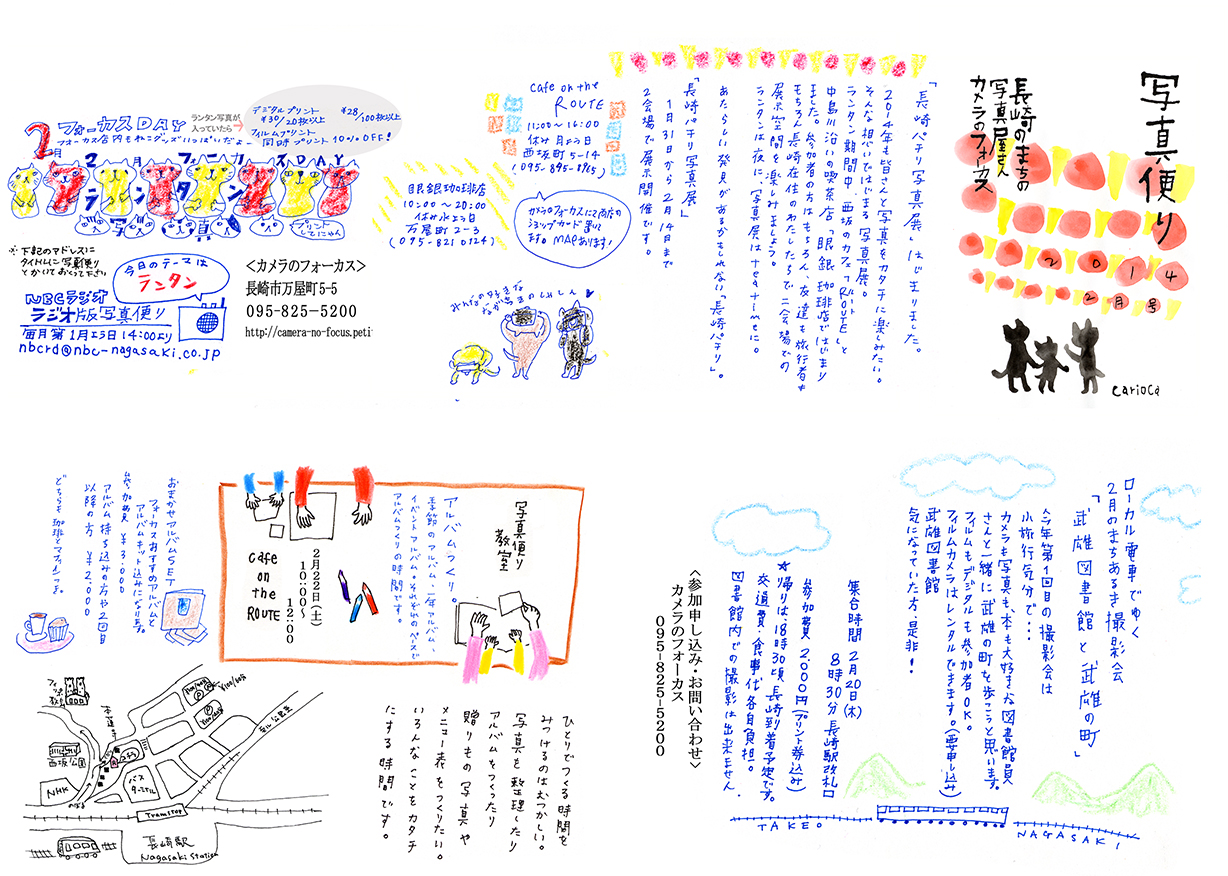 写真便り
長崎のまちの
写真屋さん
カメラのフォーカス
2014
2月号
carioca
「長崎パチリ写真展」はじまりました。
2014年も皆さんと写真をカタチに楽しみたい。
そんな想いではじまる写真展。
ランタン期間中、西坂のカフェ「ROUTE」と
中島川沿いの喫茶店「眼銀珈琲店」ではじまり
ました。参加者の方はもちろん、友達も旅行者も
もちろん長崎在住のわたしたちで二会場での
展示空間を楽しみましょう。
ランタンは夜に、写真展はteatimeに。
あたらしい発見があるかもしれない「長崎パチリ」。
「長崎パチリ写真展」
1月31日から2月14日まで
2会場で展示同時開催です。
cafe on the
ROUTE
11:00〜16:00
休み 月よう日
西坂町5-14
眼銀珈琲店
10:00〜20:00
休み 水よう日
万屋町2-3
(095-821-0124)
カメラのフォーカスに2商店の
ショップカード置いて
ます。MAPあります!
みんなの好きな
なが
デジタルプリント ¥28/100枚以上
¥30/20枚以上
フィルムプリント
同時プリント 10%OFF!
ランタン写真が
入っていたら→
2月 フォーカスDAY
フォーカス店内もねこグッズいっぱいだよー
2月フォーカスDAY
ランタン
写真
プリント
してにゃん
※下記のアドレスに
タイトルに写真便り
とかいておくって下さい
今日のテーマは
ランタン
NBCラジオ
ラジオ版写真便り
毎月第1月よう日14:00より
nbcrd@nbc-nagasaki.co.jp
<カメラのフォーカス>
長崎市万屋町5-5
095-825-5200
http://camera-no-focus.peti
ローカル電車でゆく
2月のまちあるき撮影会
「武雄図書館と武雄の町」
今年第1回目の撮影会は
小旅行気分で…
カメラも写真も、本も大好きな図書館員
さんと一緒に武雄の町を歩こうと思います。
フィルムもデジタルも参加者OK。
フィルムカメラはレンタルできます。(要申し込み)
武雄図書館
気になっていた方、是非!
集合時間 2月20日(木)
8時30分 長崎駅改札口
参加費 2,000円(プリント券込み)
★帰りは、18時30頃 長崎到着予定です。
交通費・食事代 各自負担。
図書館内での撮影は出来ません。
<参加申し込み・お問い合わせ>
カメラのフォーカス
095-825-5200
TAKEO
NAGASAKI
写真便り
教室
アルバムつくり。
季節のアルバム、一年アルバム、
イベントアルバム。それぞれのペースで
アルバムつくりの時間です。
2月22日(土)
10:00〜
12:00
cafe
on
the
ROUTE
おまかせアルバムSET
フォーカスおすすめアルバムと
アルバムキット込みになります。
参加費 ¥3,000
アルバム持ち込みの方や2回目
以降の方 ¥2,000
どちらも珈琲とマフィンつき。
ひとりでつくる時間を
みつけるのはむつかしい。
写真を整理したり
アルバムをつくったり
贈りもの写真や
メニュー表をつくりたい。
いろんなことをカタチ
にする時間です。
西坂公園
NHK
バス
ターミナル
Tramstop
長崎駅
Nagasaki Station